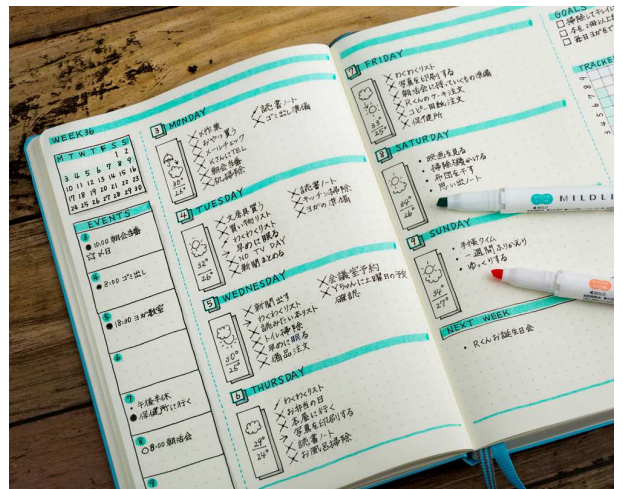 WEEK36
M T W T F S S
1 2
3 4 5 6 7 8 9
10 11 12 13 14 15 16
17 18 19 20 21 22 23
24 25 26 27 28 29 30
EVENTS
3
10:00 朝会当番
〆日
4
8:00 ゴミ出し
5
18:30 ヨガ教室
6
7
午後半休
保健所に行く
8
8:00 朝活会
9
3 MONDAY
30°
26°
おやつ買う
メールチェック
KさんにTEL
朝会当番
机掃除
読書ノート
ゴミ出し準備
4 TUESDAY
32°
26°
文房具買う
買い物リスト
わくわくリスト
早めに眠る
NO TV DAY
新聞まとめる
読書ノート
キッチン掃除
ヨガの準備
5 WEDNESDAY
30°
25°
新聞出す
わくわくリスト
読みたい本リスト
トイレ掃除
早めに眠る
備品注文
会議室予約
Yちゃんに土曜日の予定
確認
6 THURSDAY
29°
24°
わくわくリスト
お弁当の日
本屋に行く
写真を印刷する
読書ノート
お風呂掃除
7 FRIDAY
33°
25°
わくわくリスト
写真を印刷する
朝活会に持っていくもの準備
Rくんのケーキ注文
コピー用紙注文
保健所
8 SATURDAY
26°
映画を見る
掃除機かける
布団を干す
思い出ノート
9 SUNDAY
34°
27°
手帳タイム
一週間ふりかえり
ゆっくりする
NEXT WEEK
Rくんお誕生日会
GOALS
TRACKER
MILDLI